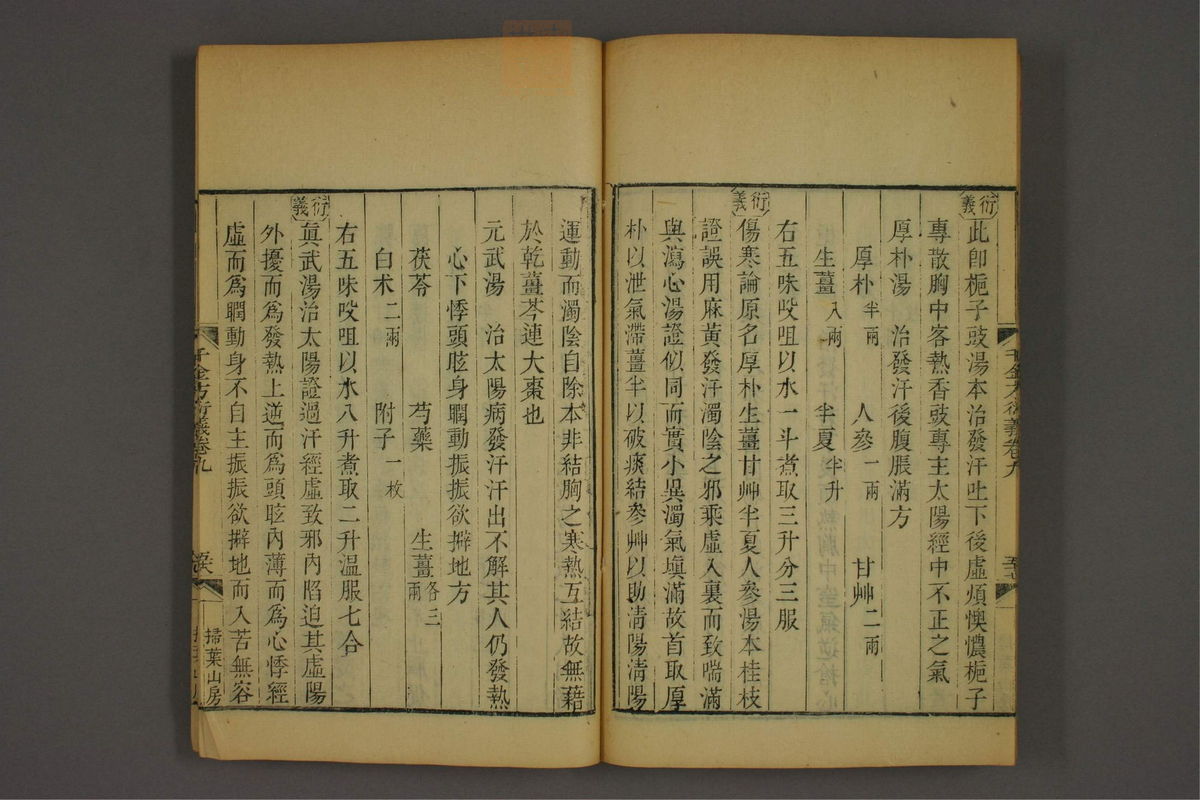 衍義
此卽梔子豉湯本治發汗吐下後虛煩懊憹梔子
專散胸中客熱香豉專主太陽經中不正之氣
厚朴湯 治發汗後腹脹滿方
厚朴半兩 人參一兩 甘艸二兩
生薑八兩 半夏半升
右五味㕮咀以水一斗煮取三升分三服
衍義
傷寒論原名厚朴生薑甘艸半夏人參湯本桂枝
證誤用麻黃發汗濁陰之邪乘虛入裏而致喘滿
與瀉心湯證似同而實小異濁氣塡滿故首取厚
朴以泄氣滯薑半以破痰結參艸以助清陽清陽
運動而濁陰自除本非結胸之寒熱互結故無藉
於乾薑芩連大棗也
元武湯 治太陽病發汗汗出不解其人仍發熱
心下悸頭眩身瞤動振振欲擗地方
茯苓 芍藥 生薑各三兩
白朮二兩 附子一枚
右五味㕮咀以水八升煮取二升溫服七合
衍義
眞武湯治太陽證過汗經虛致邪內陷迫其虛陽
外擾而爲發熱上逆而爲頭眩內薄而爲心悸經
虛而爲瞤動身不自主振振欲擗地而入苦無容
千金方衍義卷九
掃葉山房